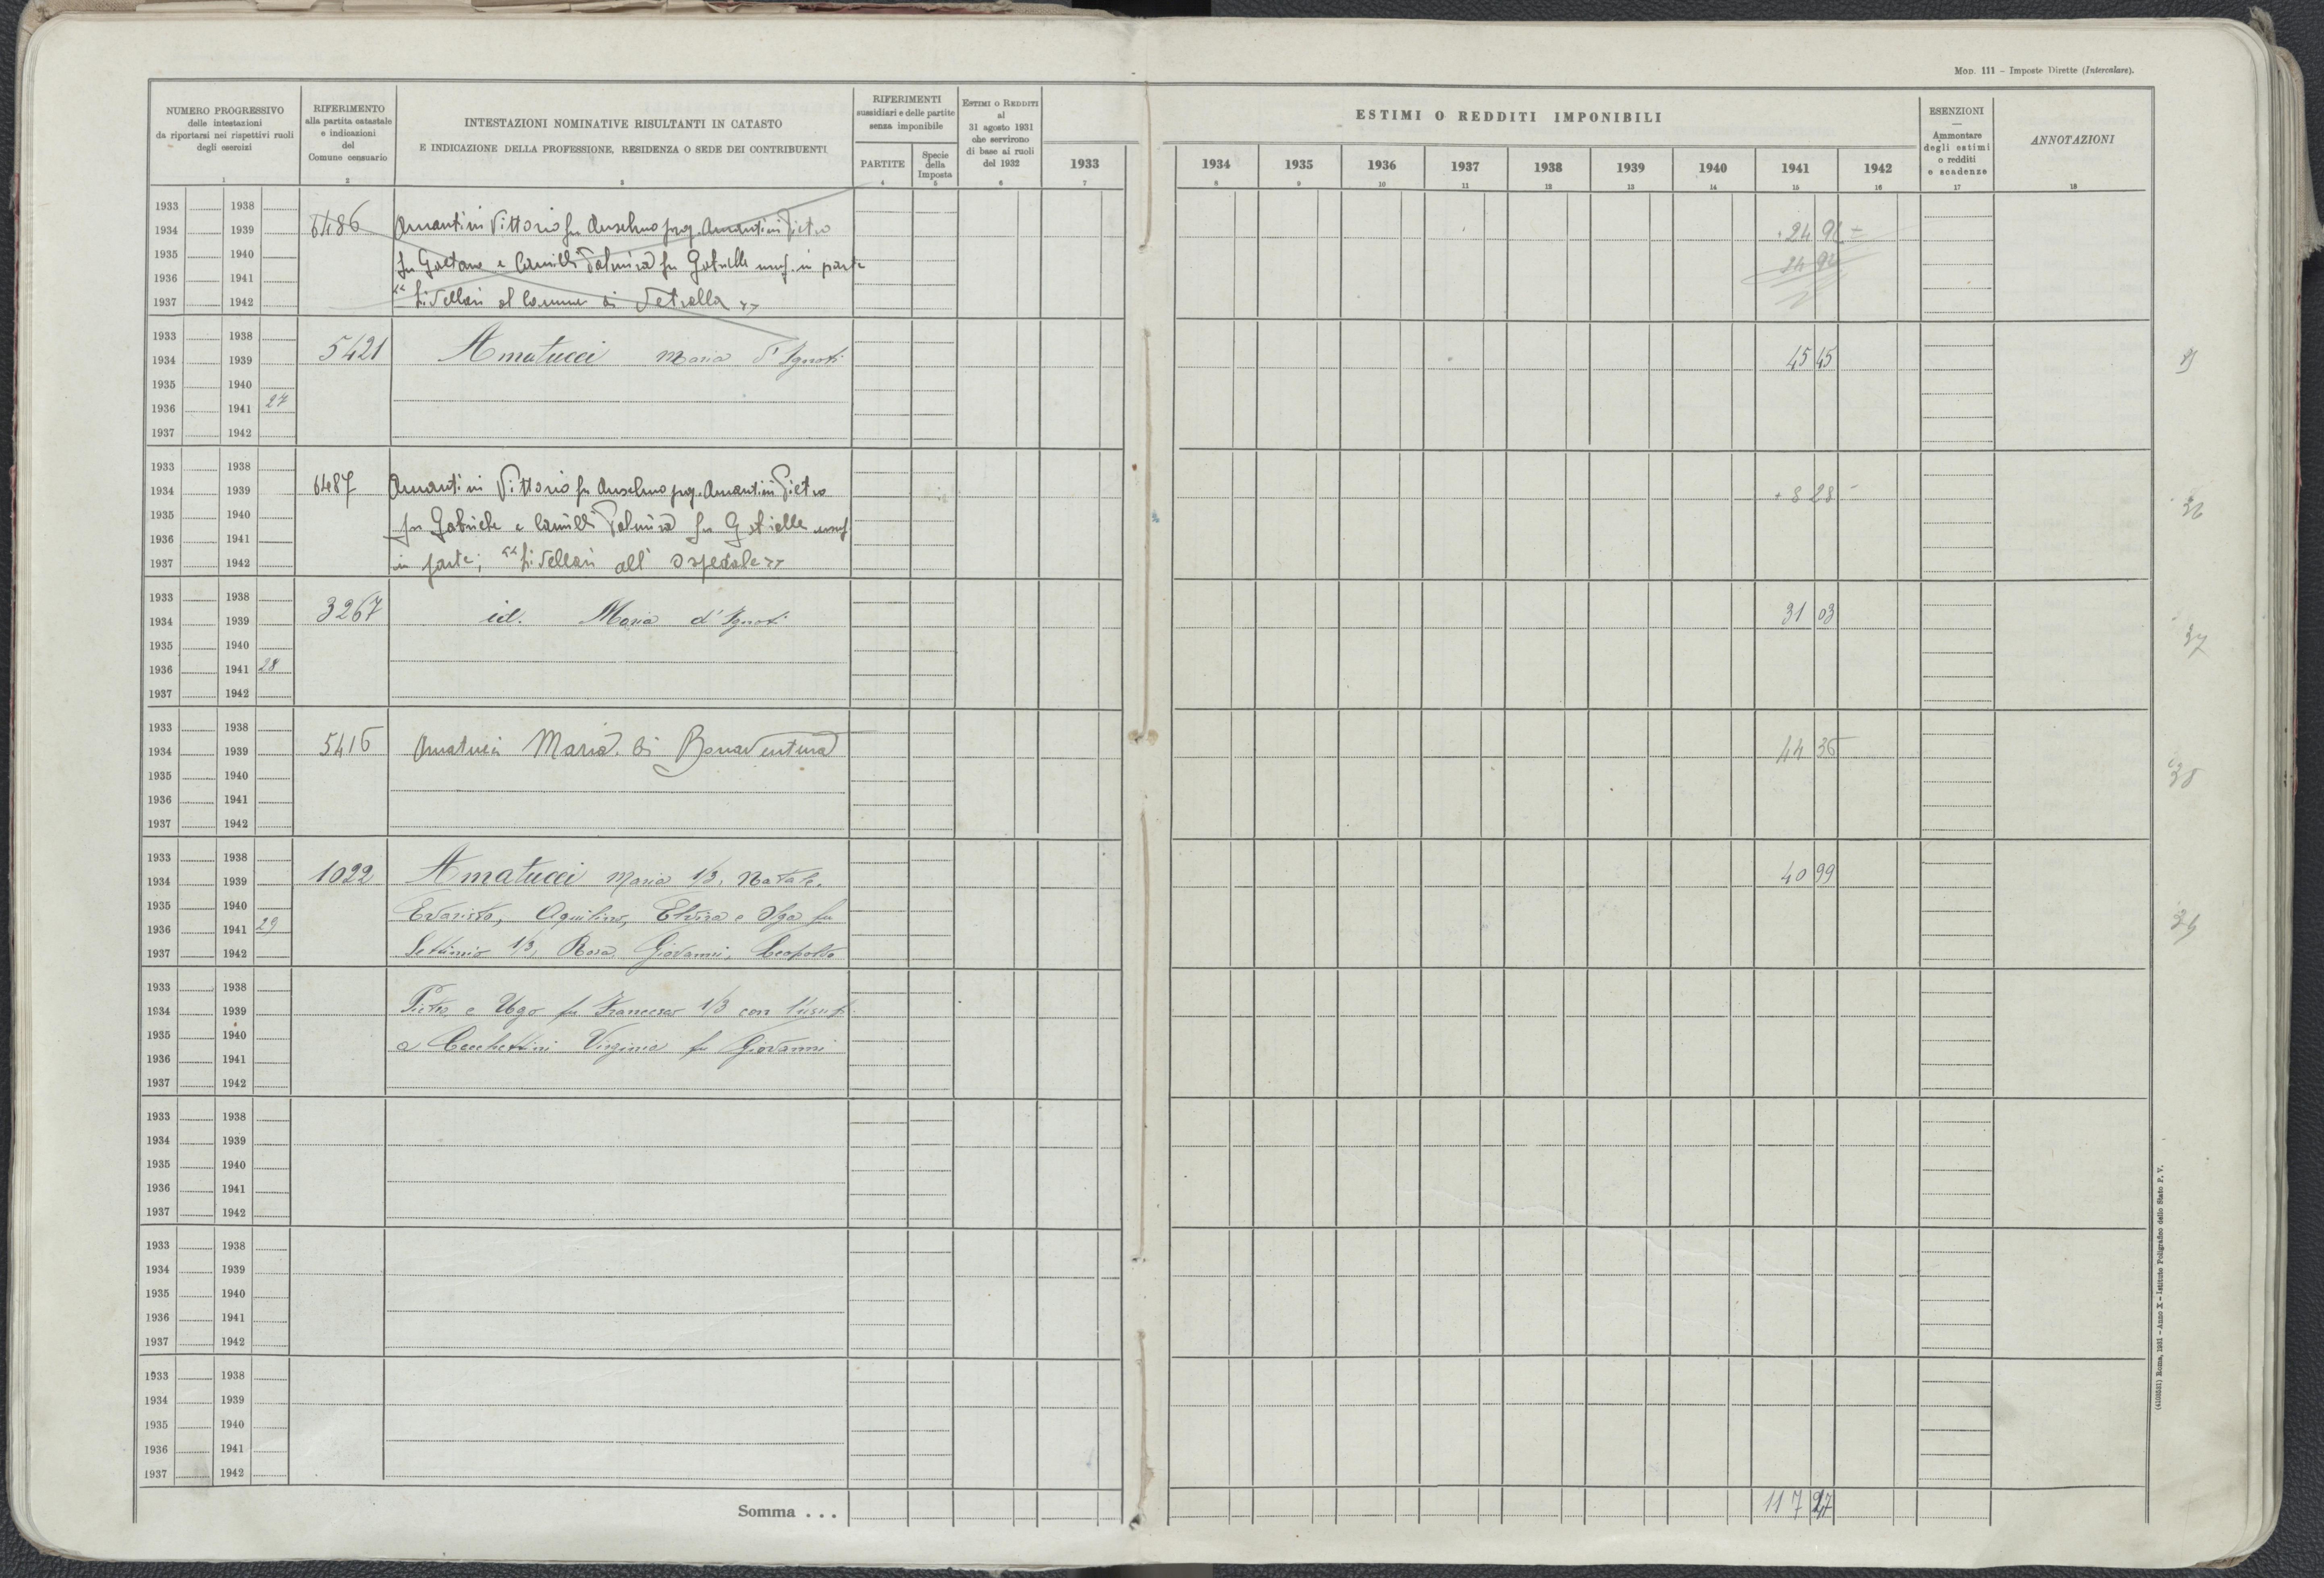 Mod. 111 – Imposte Dirette (Intercalare).
NUMERO PROGRESSIVO
delle intestazioni
da riportarsi nei rispettivi ruoli
degli esercizi
1
RIFERIMENTO
alla partita catastale
e indicazioni
del
Comune censuario
2
INTESTAZIONI NOMINATIVE RISULTANTI IN CATASTO
E INDICAZIONE DELLA PROFESSIONE, RESIDENZA O SEDE DEI CONTRIBUENTI
3
RIFERIMENTI
sussidiari e delle partite
senza imponibile
PARTITE
4
Specie
della
Imposta
5
Estimi o Redditi
al
31 agosto 1931
che servirono
di base ai ruoli
del 1932
6
1933
7
ESTIMI O REDDITI IMPONIBILI
1934 1935 1936 1937 1938 1939 1940 1941 1942
8 9 10 11 12 13 14 15 16
ESENZIONI
—
Ammontare
degli estimi
o redditi
e scadenze
17
ANNOTAZIONI
18
1933 1938
1934 1939 6486 Amantini Vittorio fu Anselmo prop. Amantini Pietro 24 92
1935 1940 fu Gaetano e Camilli Palmira fu Gabriele usuf. in parte
1936 1941 24 92
1937 1942 “Livellari al Comune di Vetralla”
1933 1938
1934 1939 5421 Amatucci Maria d'Ignoti 45 45
1935 1940
1936 1941 27
1937 1942
1933 1938
1934 1939 6487 Amantini Vittorio fu Anselmo prop. Amantini Pietro + 8 28 – 36
1935 1940 fu Gabriele e Camilli Palmira fu Gabrielle usuf.
1936 1941
1937 1942 in parte; “Livellari all'Ospedale”
1933 1938
1934 1939 3267 id. Maria d'Ignoti 31 03
1935 1940 37
1936 1941 28
1937 1942
1933 1938
1934 1939 5416 Amatucci Maria di Bonaventura 44 36
1935 1940 38
1936 1941
1937 1942
1933 1938
1934 1939 1022 Amatucci Maria 1/3, Natale, 40 99
1935 1940 Evaristo, Aquilino, Elvira e Olga fu
1936 1941 29 39
1937 1942 Settimio 1/3, Rosa Giovanni, Leopoldo
1933 1938
1934 1939 Pietro e Ugo fu Francesco 1/3 con l'usuf.
1935 1940 a Cecchettini Virginia fu Giovanni
1936 1941
1937 1942
1933 1938
1934 1939
1935 1940
1936 1941
1937 1942
1933 1938
1934 1939
1935 1940
1936 1941
1937 1942
1933 1938
1934 1939
1935 1940
1936 1941
1937 1942
Somma . . . 117 27
(4103531) Roma, 1931 – Anno X – Istituto Poligrafico dello Stato P. V.